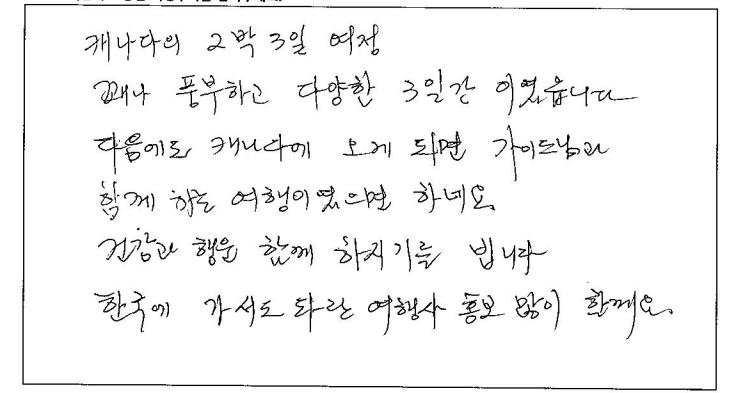 캐나다의 2박 3일 여정
꽤나 풍부하고 다양한 3일간 이였읍니다
다음에도 캐나다에 오게 되면 가이드님과
함께 하는 여행이였으면 하네요.
건강과 행운 함께 하지기를 빕니다
한국에 가서도 파란 여행사 홍보 많이 할께요.